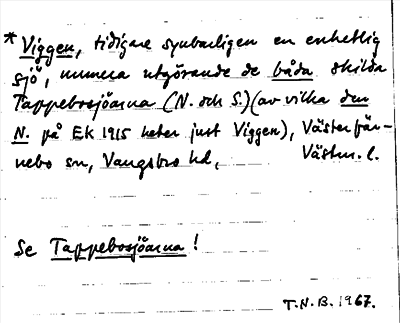 * Viggen, tidigare synbarligen en enhetlig
sjö, numera utgörande de båda skilda
Tappebosjöarna (N. och S.) (av vilka den
N. på EK 1915 heter just Viggen), Västerfär-
nebo sn, Vangsbro hd, Västm. l.
Se Tappebosjöarna!
T.N.B. 1967.